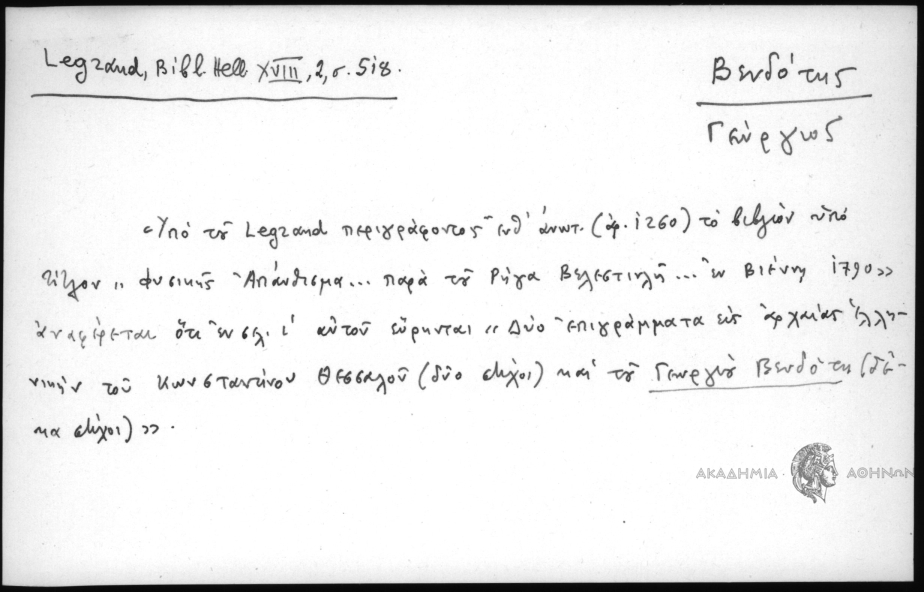 Legrand, Bibl. Hell. XVIII, 2, σ. 518.
Βενδότης
Γεώργιος
«Ὑπὸ τοῦ Legrand περιγράφοντος ἔνθ' ἀνωτ. (ἀρ. 1260) τὸ βιβλίον ὑπὸ
τίτλον „ Φυσικῆς Ἀπάνθισμα... παρὰ τοῦ Ρήγα Βελεστινλῆ... ἐν Βιέννῃ 1790»
ἀναφέρεται ὅτι ἐν σελ. ι' αὐτοῦ εὕρηνται „ Δύο ἐπιγράμματα εἰς ἀρχαίαν ἑλλη-
νικὴν τοῦ Κωνσταντίνου Θεσσαλοῦ (δύο στίχοι) καὶ τοῦ Γεωργίου Βενδότη (δέ-
κα στίχοι)».
ΑΚΑΔΗΜΙΑ ΑΘΗΝΩΝ